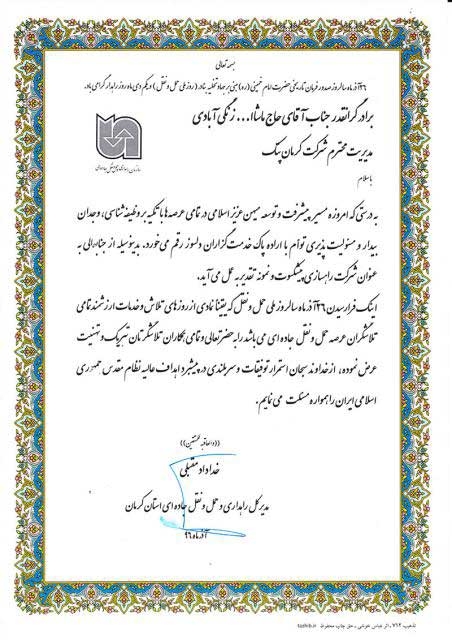 بسمه تعالی
۲۶ آذرماه سالروز صدور فرمان تاریخی حضرت امام خمینی (ره) مبنی بر جهاد تخلیه بنادر (روز ملی حمل و نقل) و یکم دی ماه روز راهدار گرامی باد.
برادر گرانقدر جناب آقای حاج ماشاا... زنگی آبادی
مدیریت محترم شرکت کرمان پیک
با سلام
سازمان راهداری و حمل و نقل جاده ای
به درستی که امروزه مسیر پیشرفت و توسعه میهن عزیز اسلامی در تمامی عرصه ها با تکیه بر وظیفه شناسی، وجدان
بیدار و مسئولیت پذیری توأم با اراده پاک خدمت گزاران دلسوز رقم می خورد. بدینوسیله از جنابعالی به
عنوان شرکت راهسازی پیشکسوت و نمونه تقدیر به عمل می آید.
اینک فرا رسیدن ۲۶ آذر ماه سالروز ملی حمل و نقل که یقینا نمادی از روزهای تلاش و خدمات ارزشمند تمامی
تلاشگران عرصه حمل و نقل جاده ای می باشد را به حضرتعالی و تمامی همکاران تلاشگرتان تبریک و تهنیت
عرض نموده، از خداوند سبحان استمرار توفیقات و سربلندی در پیشبرد اهداف عالیه نظام مقدس جمهوری
اسلامی ایران را همواره مسئلت می نمایم.
((والعاقبه للمتقین))
خداداد مقبلی
مدیر کل راهداری و حمل و نقل جاده ای استان کرمان
آذر ماه ۹۶
تذهیب ۷۱۲، اثر عباس خوشی - حق چاپ محفوظ tazhib.ir